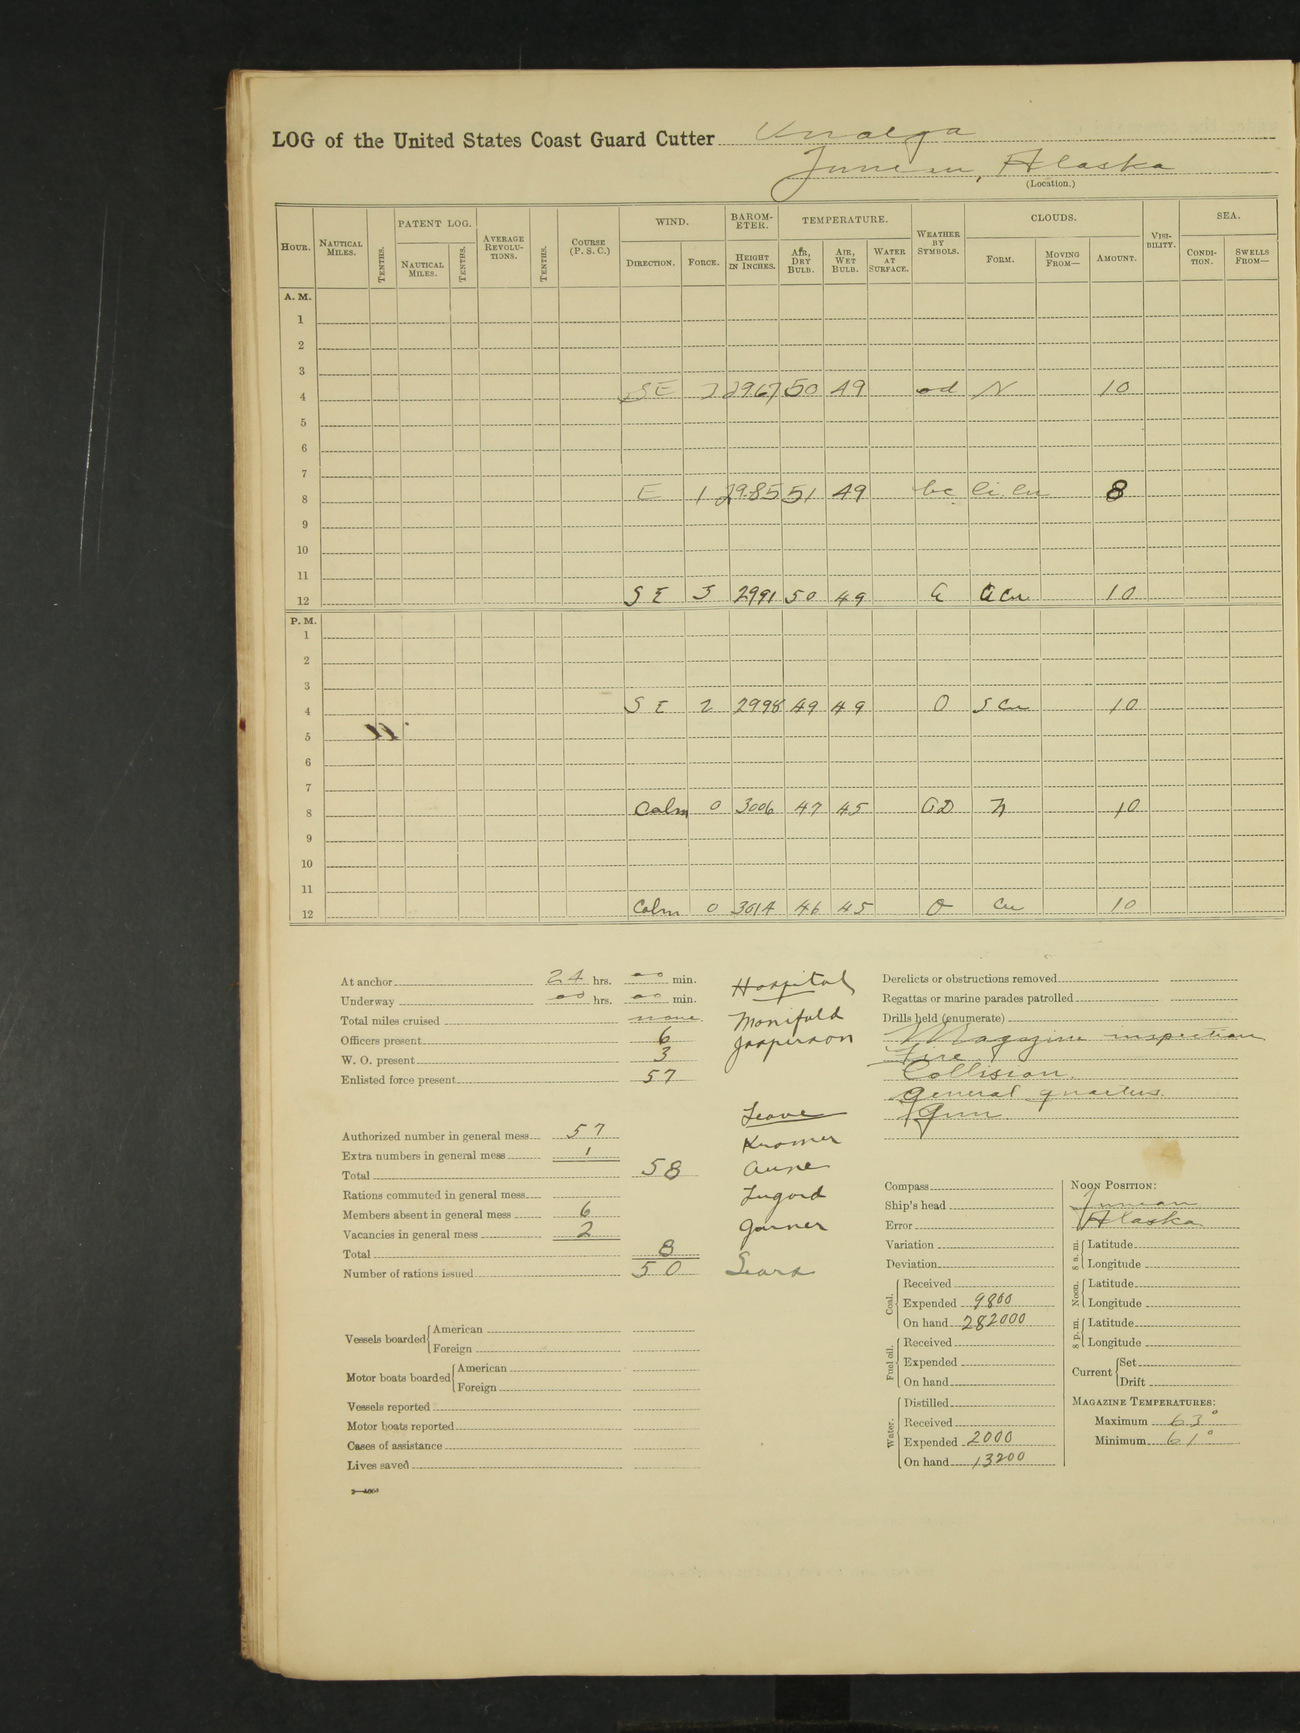 LOG of the United States Coast Guard Cutter Unalga
Juneau, Alaska
(Location.)
HOUR. NAUTICAL MILES. TENTHS. PATENT LOG. NAUTICAL MILES. TENTHS. AVERAGE REVOLUTIONS. TENTHS. COURSE (P. S. C.) WIND. DIRECTION. FORCE. BAROMETER. HEIGHT IN INCHES. TEMPERATURE. AIR, DRY BULB. AIR, WET BULB. WATER AT SURFACE. WEATHER BY SYMBOLS. CLOUDS. FORM. MOVING FROM— AMOUNT. VISIBILITY. SEA. CONDITION. SWELLS FROM—
A. M.
1
2
3
4 SE 2 2967 50 49 od N 10
5
6
7
8 E 1 29.85 51 49 bc Ci. Cu 8
9
10
11
12 SE 3 2991 50 49 10
P. M.
1
2
3
4 SE 2 2998 49 49 O S Cu 10
5
6
7
8 Calm 0 3006 47 45 OD N 10
9
10
11
12 Calm 0 3014 46 45 O Cu 10
At anchor 24 hrs. 00 min.
Underway 00 hrs. 00 min.
Total miles cruised none
Officers present 6
W. O. present 3
Enlisted force present 57
Authorized number in general mess 57
Extra numbers in general mess 1
Total 58
Rations commuted in general mess
Members absent in general mess 6
Vacancies in general mess 2
Total 8
Number of rations issued 50
Vessels boarded American
Foreign
Motor boats boarded American
Foreign
Vessels reported
Motor boats reported
Cases of assistance
Lives saved
Hospital
Manifold
Jasperson
Leave
Kromer
Garner
Sears
Derelicts or obstructions removed
Regattas or marine parades patrolled
Drills held (enumerate)
Magazine inspection
Fire
Collision.
General quarters.
Gun
Compass
Ship's head
Error
Variation
Deviation
Coal. Received
Expended 9800
On hand 282000
Fuel oil. Received
Expended
On hand
Water. Distilled
Received
Expended 2000
On hand 13200
NOON POSITION:
Juneau
Alaska
8 a. m. Latitude
Longitude
Noon. Latitude
Longitude
8 p. m. Latitude
Longitude
Current Set
Drift
MAGAZINE TEMPERATURES:
Maximum 63°
Minimum 61°